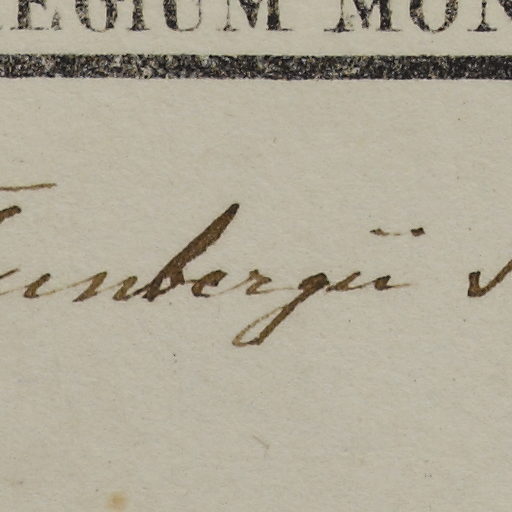 REGIUM MON
unbergii